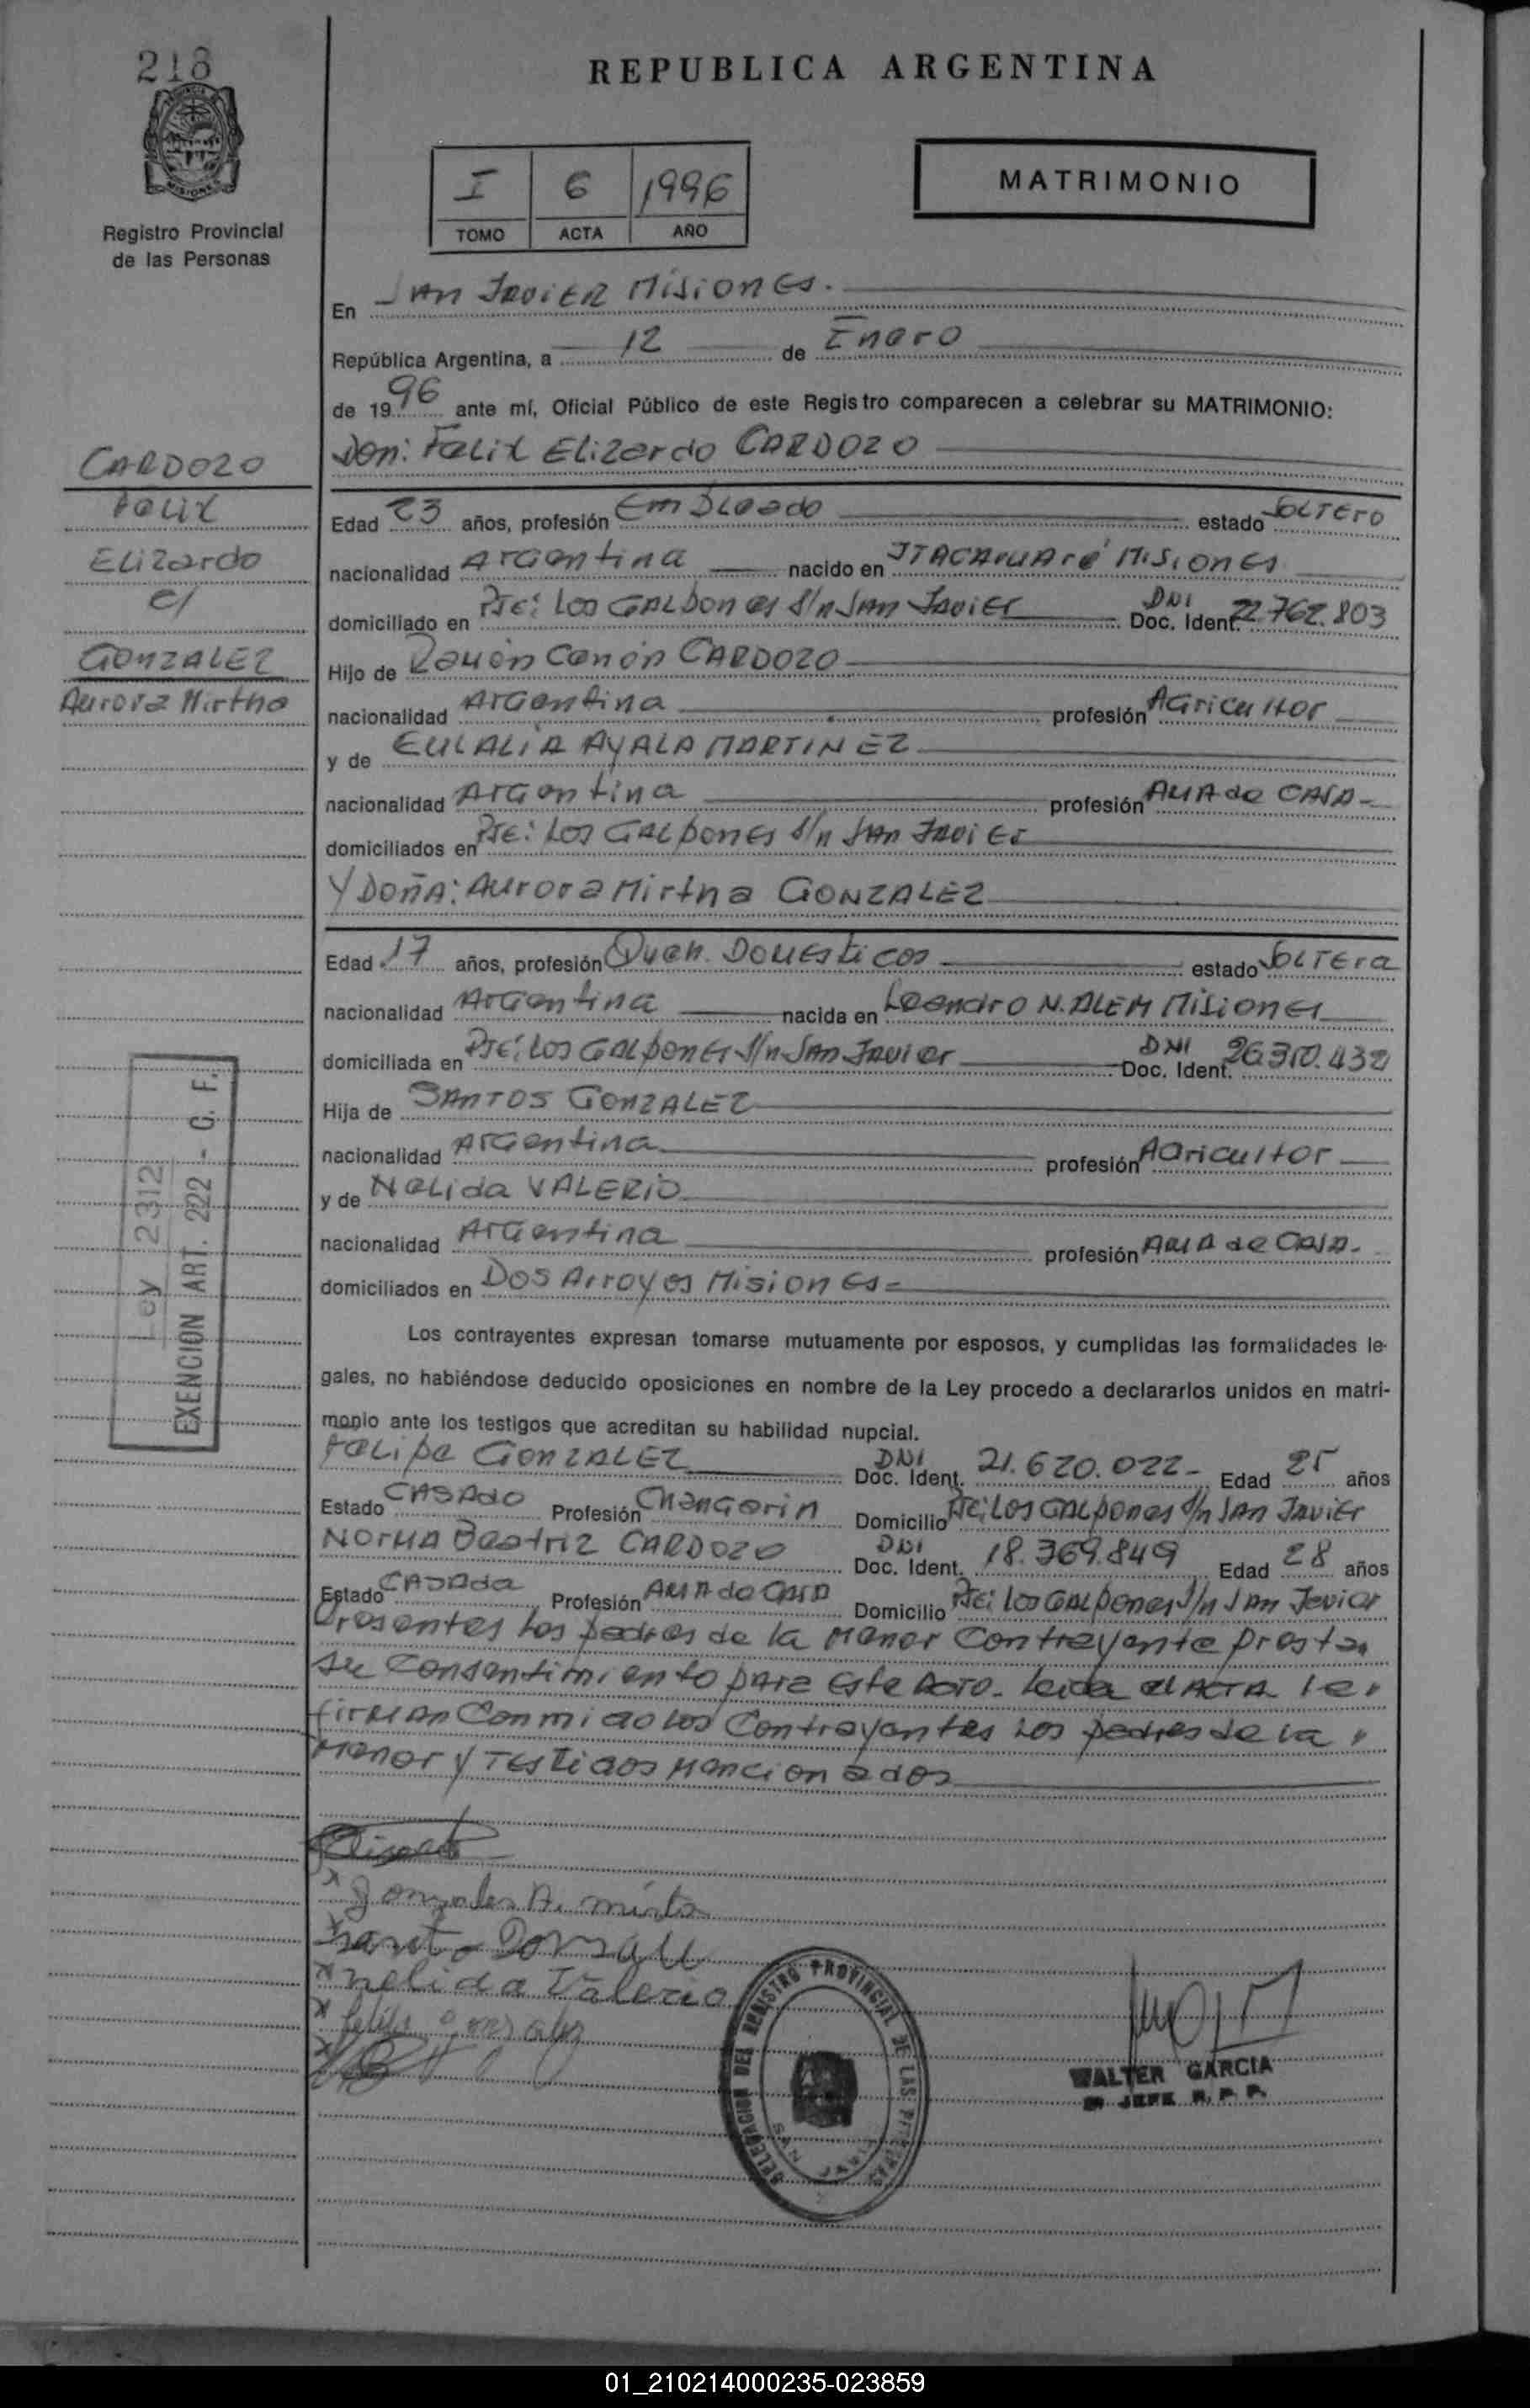 218
REPUBLICA ARGENTINA
MISIONES
Registro Provincial
de las Personas
I 6 1996
TOMO ACTA AÑO
MATRIMONIO
En SAN JAVIER MISIONES.
República Argentina, a 12 de Enero
de 1996 ante mí, Oficial Público de este Registro comparecen a celebrar su MATRIMONIO:
Don: Felix Elizardo CARDOZO
CARDOZO
Felix
Elizardo
c/
GONZALEZ
Aurora Mirtha
Edad 23 años, profesión Empleado estado SOLTERO
nacionalidad Argentina nacido en ITACARUARé MISIONES
domiciliado en Pje: Los GALPONES S/n SAN JAVIER DNI Doc. Ident. 22.762.803
Hijo de Ramón CARDOZO
nacionalidad Argentina profesión Agricultor
y de EULALIA AYALA MARTINEZ
nacionalidad Argentina profesión AMA de CASA-
domiciliados en Pje: LOS GALPONES S/n SAN JAVIER
Y DOÑA: Aurora Mirtha GONZALEZ
Edad 17 años, profesión Queh. DOMESTICOS estado SOLTERA
nacionalidad Argentina nacida en Leandro N. ALEM MISIONES
domiciliada en Pje: LOS GALPONES S/n SAN JAVIER DNI Doc. Ident. 26.310.432
Hija de SANTOS GONZALEZ
nacionalidad Argentina profesión Agricultor
y de Nelida VALERIO
nacionalidad Argentina profesión AMA de CASA.
domiciliados en DOS Arroyos MISIONES=
Ley 2312
EXENCION ART. 222 - C. F.
Los contrayentes expresan tomarse mutuamente por esposos, y cumplidas las formalidades le-
gales, no habiéndose deducido oposiciones en nombre de la Ley procedo a declararlos unidos en matri-
monio ante los testigos que acreditan su habilidad nupcial.
Felipe GONZALEZ DNI Doc. Ident. 21.620.022- Edad 25 años
Estado CASADO Profesión Changarin Domicilio Pje: LOS GALPONES S/n SAN JAVIER
NORMA Beatriz CARDOZO DNI Doc. Ident. 18.369.849 Edad 28 años
Estado CASADA Profesión AMA de CASA Domicilio Pje: LOS GALPONES S/n SAN Javier
Presentes los padres de la menor contrayente prestan
su consentimiento para este ACTO- Leida el ACTA la
firman conmigo los contrayentes los padres de la
menor y TESTIGOS mencionados
Elizardo
x Gonzales A. mirta
x Santo Gonzalez
x nelida Valerio
x felipe gonzalez
x
DELEGACION DEL REGISTRO PROVINCIAL DE LAS PERSONAS
SAN JAVIER
WALTER GARCIA
JEFE R. P. P.
01_210214000235-023859